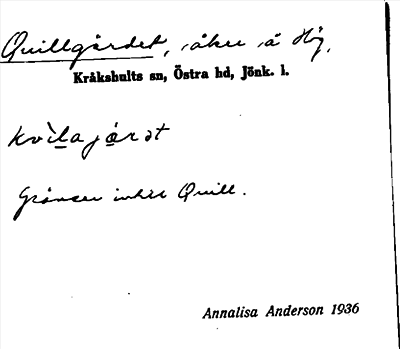 Quillgärdet, åker å Hg,
Kråkshults sn, Östra hd, Jönk. l.
kvìlajárət
Gränser inkill Quill.
Annalisa Anderson 1936